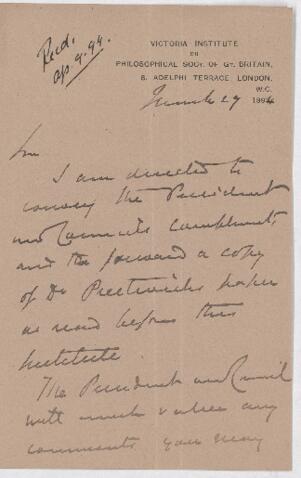 Recd.
Ap. 9. 94.
VICTORIA INSTITUTE
OR
PHILOSOPHICAL SOCY. OF GT. BRITAIN,
8, ADELPHI TERRACE, LONDON,
W.C.
March 29 1894
Sir
I am directed to
convey the President
and Council's compliments
and to forward a copy
of Dr Prestwich's paper
as read before this
Institute.
The President and Council
will much value any
comments you may